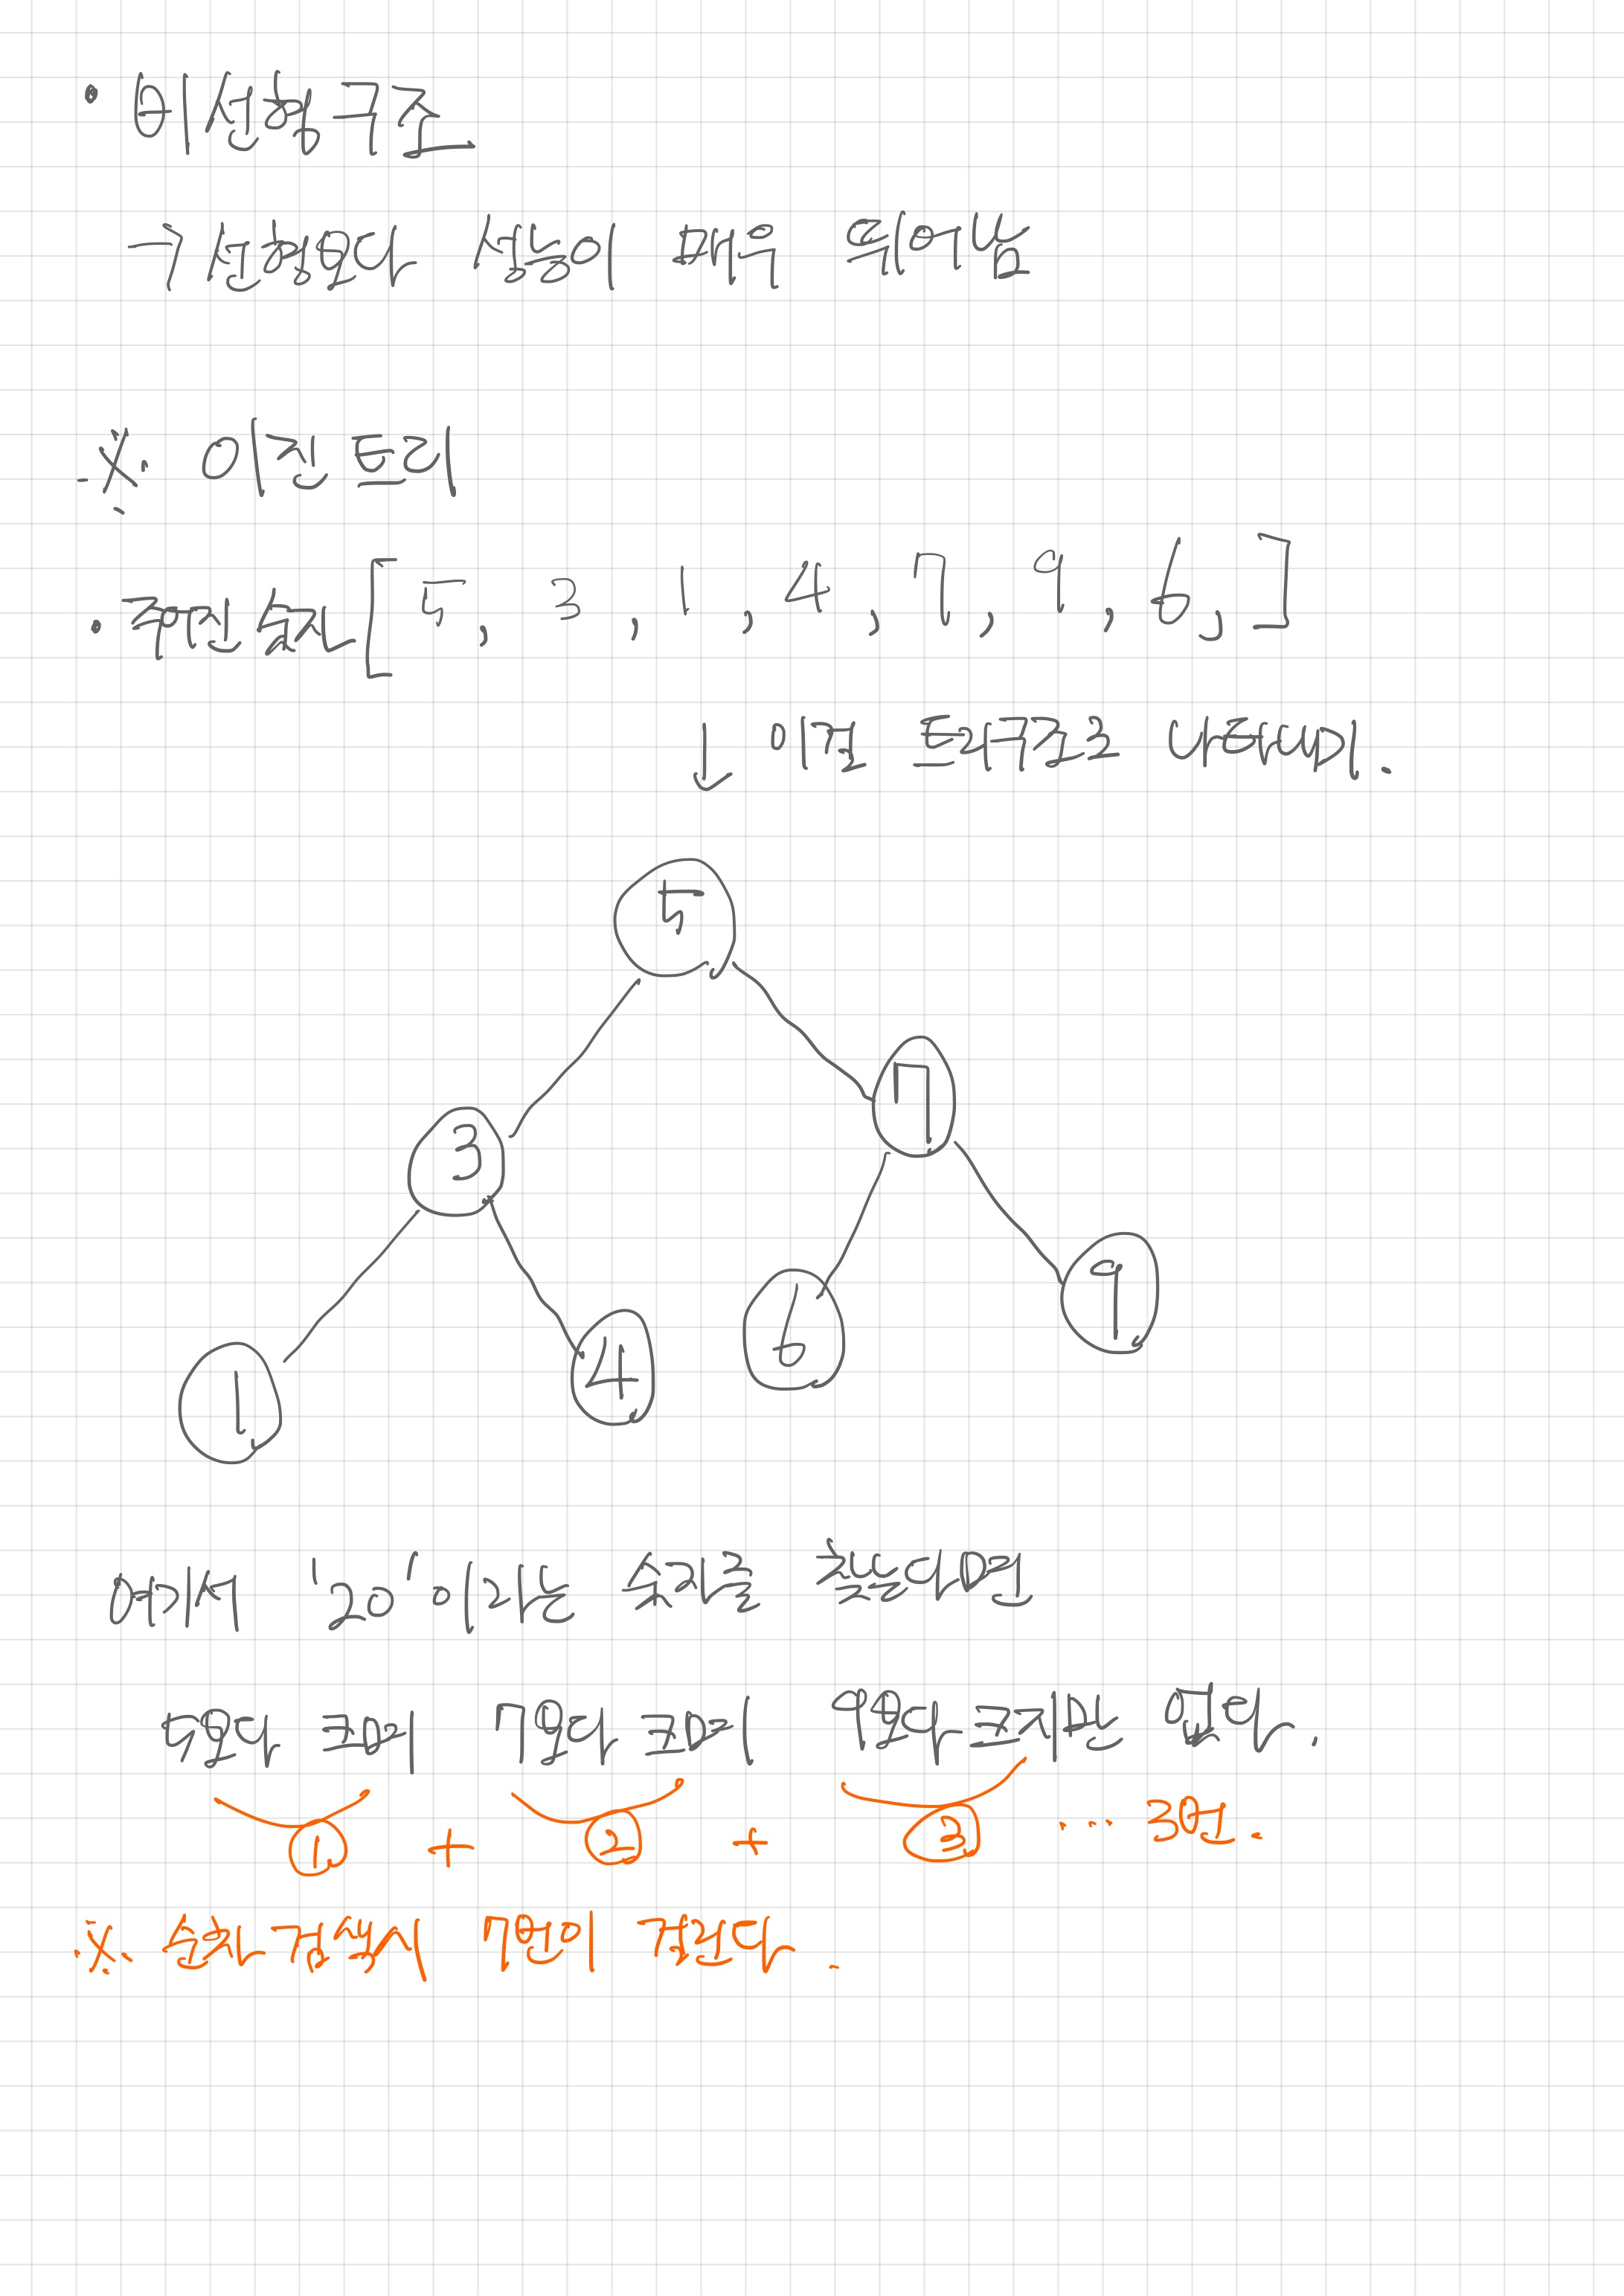 • 비선형구조.
→ 선형보다 성능이 매우 뛰어남
※. 이진트리
• 주어진 숫자 [ 5, 3, 1, 4, 7, 9, 6, ]
↓ 이걸 트리구조로 나타내며.
5
7
3
9
6
4
1
여기서 '20'이라는 숫자를 찾는다면
5보다 크며 7보다 크며 9보다 크지만 없다.
① + ② + ③ ... 3번.
※. 순차 검색시 7번이 걸린다.